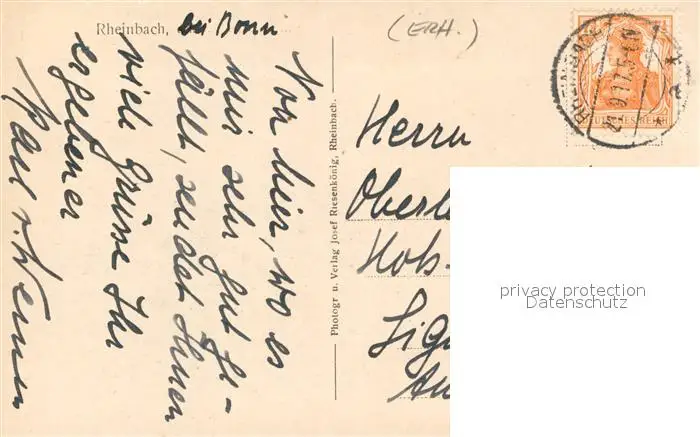 Rheinbach, bei Bonn
(ERH.)
Von hier, wo es
mir sehr gut ge-
fällt, sendet Ihnen
viele Grüsse Ihr
ergebener
Photogr u. Verlag Josef Riesenkönig, Rheinbach.
Herrn
Oberl
DEUTSCHES REICH
7½
privacy protection
Datenschutz